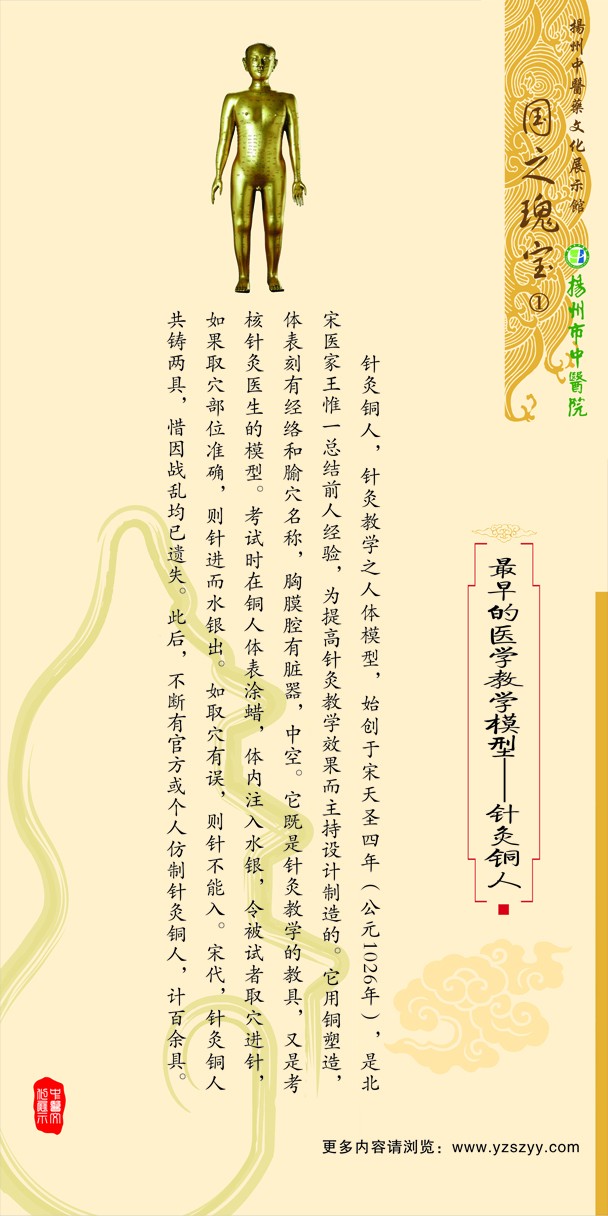 揚州中醫藥文化展示館
国之瑰宝①
揚州市中醫院
最早的医学教学模型——针灸铜人
针灸铜人，针灸教学之人体模型，始创于宋天圣四年（公元1026年），是北
宋医家王惟一总结前人经验，为提高针灸教学效果而主持设计制造的。它用铜塑造，
体表刻有经络和腧穴名称，胸膜腔有脏器，中空。它既是针灸教学的教具，又是考
核针灸医生的模型。考试时在铜人体表涂蜡，体内注入水银，令被试者取穴进针，
如果取穴部位准确，则针进而水银出。如取穴有误，则针不能入。宋代，针灸铜人
共铸两具，惜因战乱均已遗失。此后，不断有官方或个人仿制针灸铜人，计百余具。
更多内容请浏览：www.yzszyy.com